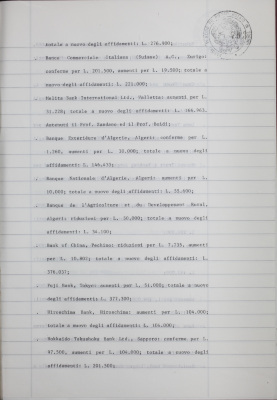 totale a nuovo degli affidamenti: L. 276.800;
. Banca Commerciale Italiana (Suisse) A.G., Zurigo:
conferme per L. 201.500, aumenti per L. 19.500; totale a
nuovo degli affidamenti: L. 221.000;
. Melita Bank International Ltd., Valletta: aumenti per L.
31.220; totale a nuovo degli affidamenti: L.
Astenuti il Prof. Sandano ed il Prof. Guidi;
. Banque Extérieure d'Algerie, Algeri: conferme per L.
1.560, aumenti per L. 30.000; totale a nuovo degli
affidamenti: L. 146.433;
. Banque Nationale d'Algerie, Algeri: aumenti per L.
10.000; totale a nuovo degli affidamenti: L. 55.600;
. Banque de L'Agriculture et du Developpement Rural,
Algeri: riduzioni per L. 30.000; totale a nuovo degli
affidamenti: L. 34.100;
. Bank of China, Pechino: riduzioni per L. 7.235, aumenti
per L. 30.802; totale a nuovo degli affidamenti: L.
370.037;
. Fuji Bank, Tokyo: aumenti per L. 51.000; totale a nuovo
degli affidamenti: L. 373.300;
. Hiroshima Bank, Hiroshima: aumenti per L. 104.000;
totale a nuovo degli affidamenti: L. 104.000;
. Hokkaido Takushoku Bank Ltd., Sapporo: conferme per L.
97.500, aumenti per L. 104.000; totale a nuovo degli
affidamenti: L. 201.500;